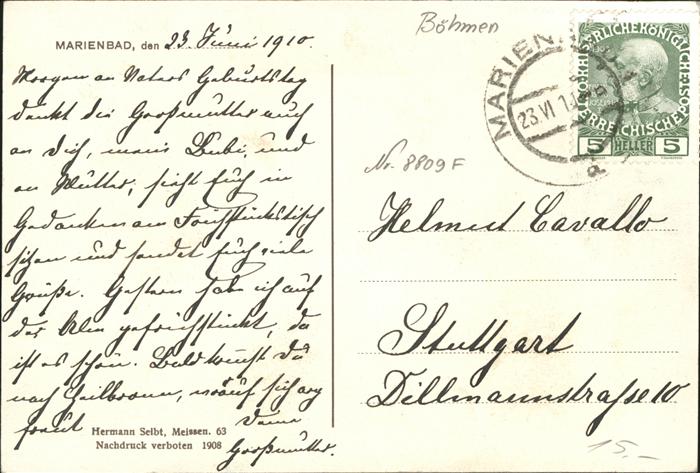 MARIENBAD, den 23. Juni 1910.
Morgen an Vaters Geburtstag
denkt die Großmutter auch
an Dich, mein Bubi, und
an Mutter, sieht Euch in
Gedanken am Frühstückstisch
sitzen und sendet Euch viele
Grüße. Gestern habe ich auf
der Alm gefrühstückt, da
ist es schön. Bald kommst Du
nach Heilbronn, worauf sich arg
freut Deine
Großmutter.
Hermann Seibt, Meissen. 63
Nachdruck verboten 1908
Böhmen
MARIENBAD
23 VI 10
KAISERLICHE KÖNIGLICHE ÖSTERREICHISCHE POST
5 HELLER 5
Nr. 8809 F
Helmut Cavallo
Stuttgart
Dillmannstraße 10
15.-